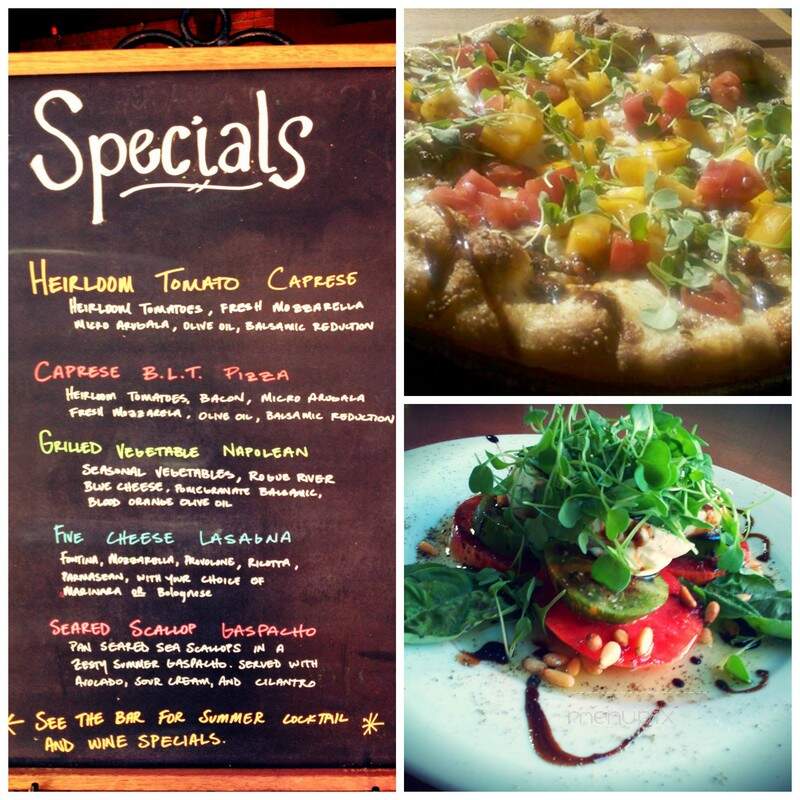 Specials
HEIRLOOM TOMATO CAPRESE
HEIRLOOM TOMATOES, FRESH MOZZARELLA
MICRO ARUGALA, OLIVE OIL, BALSAMIC REDUCTION
CAPRESE B.L.T. PIZZA
HEIRLOOM TOMATOES, BACON, MICRO ARUGALA
FRESH MOZZARELA, OLIVE OIL, BALSAMIC REDUCTION
GRILLED VEGETABLE NAPOLEAN
SEASONAL VEGETABLES, ROGUE RIVER
BLUE CHEESE, POMEGRANATE BALSAMIC,
BLOOD ORANGE OLIVE OIL
FIVE CHEESE LASAGNA
FONTINA, MOZZARELLA, PROVOLONE, RICOTTA,
PARMASEAN, WITH YOUR CHOICE OF
MARINARA OR Bolognese
SEARED SCALLOP GASPACHO
PAN SEARED SEA SCALLOPS IN A
ZESTY SUMMER GASPACHO. SERVED WITH
AVOCADO, SOUR CREAM, AND CILANTRO
SEE THE BAR FOR SUMMER COCKTAIL
AND WINE SPECIALS.
menupix